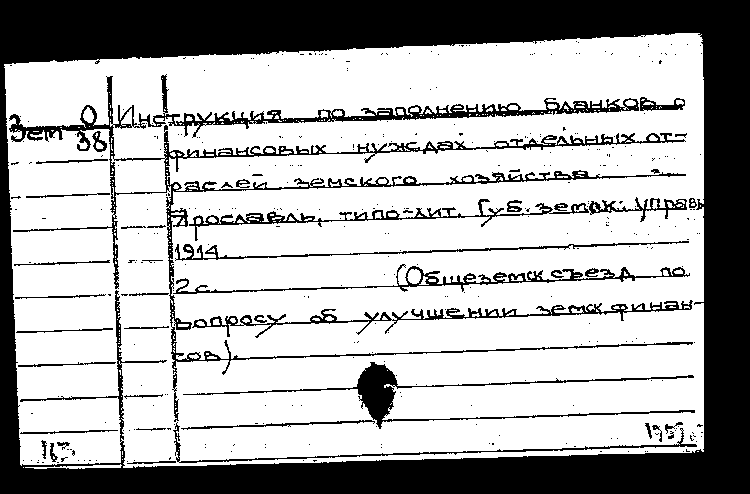 Зем О Инструкция по заполнению бланков о
38 финансовых нуждах отдельных от-
раслей земского хозяйства.
Ярославль, типо-лит. Губ. земск. управы
1914.
2 с. (Общеземск. съезд по
вопросу об улучшении земск. финан-
сов).